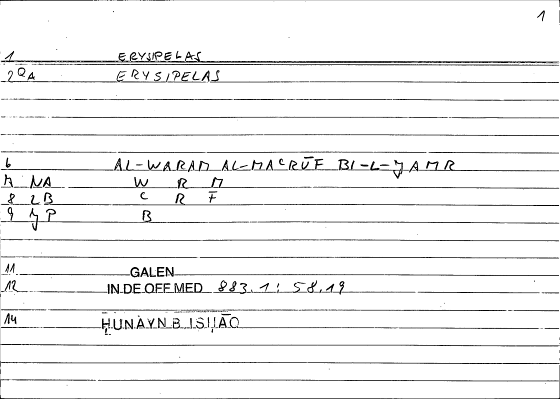 1
1 ERYSIPELAS
2QA ERYSIPELAS
6 AL-WARAM AL-MAᶜRŪF BI-L-ǦAMR
7 NA W R M
8 LB ᶜ R F̄
9 P B
11 GALEN
12 IN DE OFF MED 883.1: 58.19
14 ḤUNAYN B. ISḤĀQ